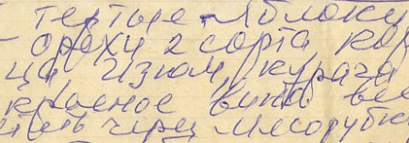 - тертые яблоки
- орехи 2 сорта кор
ца изюм, курага
красное вино все
через мясорубк